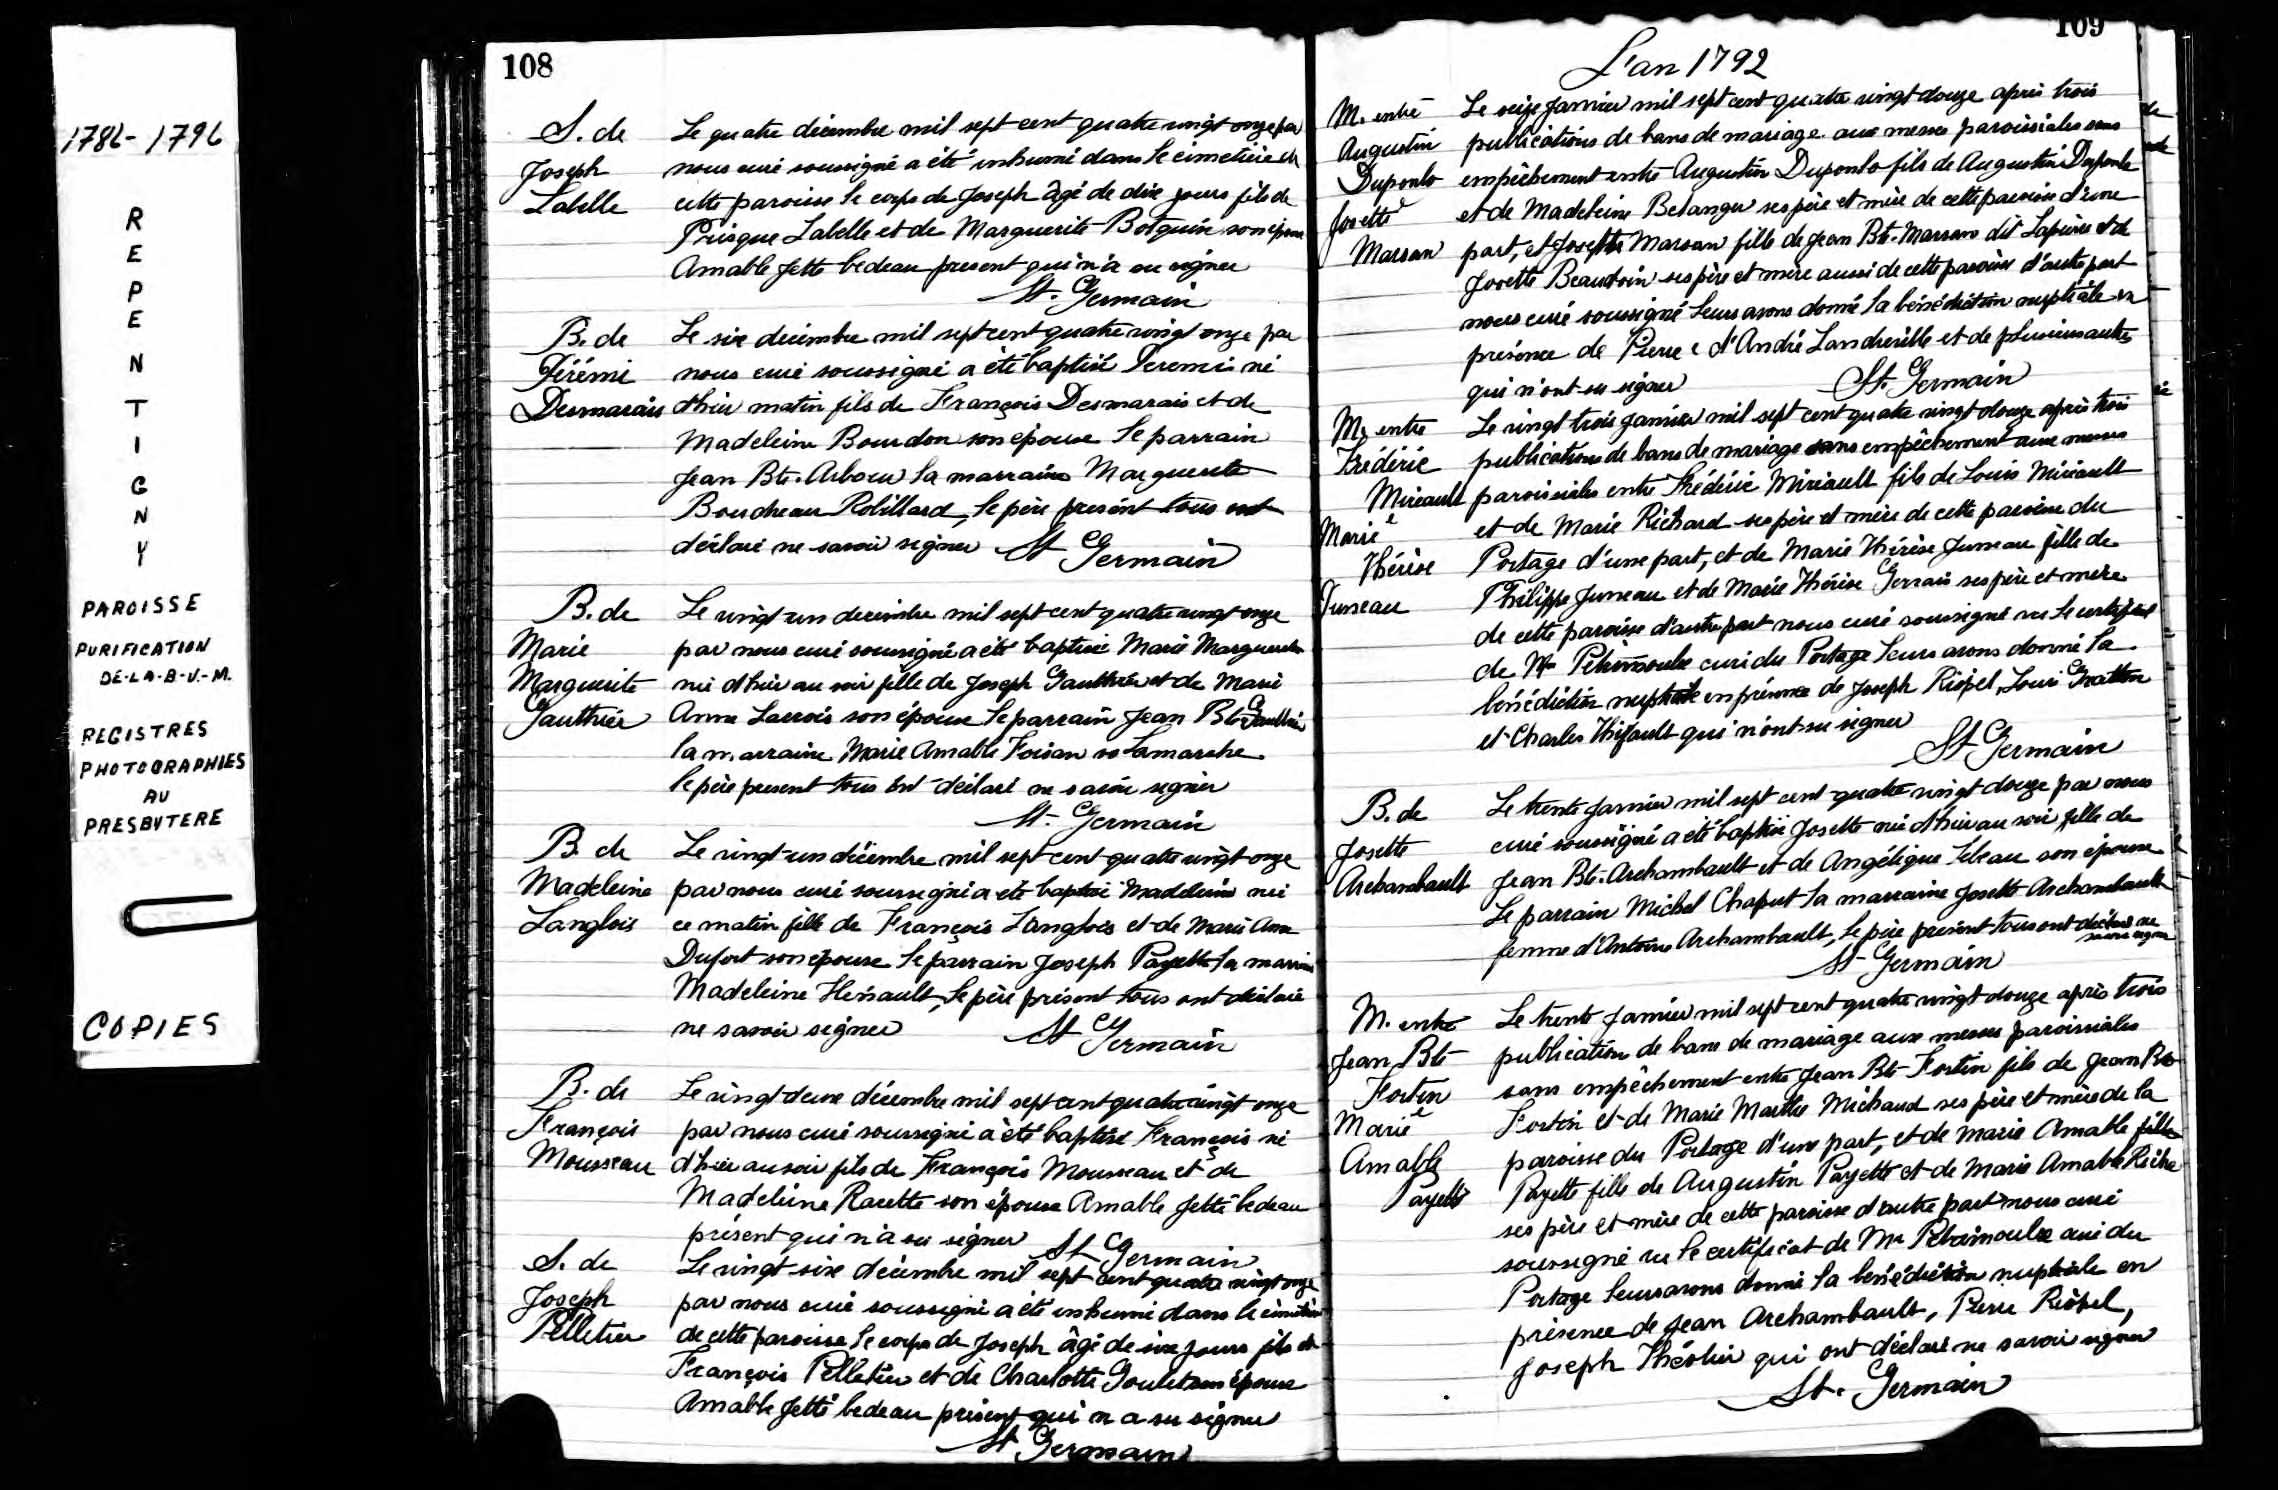 1786-1796
REPENTIGNY
PAROISSE
PURIFICATION
DE-LA-B-V.-M.
REGISTRES
PHOTOGRAPHIES
AU
PRESBYTERE
COPIES
108
S. de
Joseph
Labelle
Le quatre décembre mil sept cent quatre vingt onze par
nous curé soussigné a été inhumé dans le cimetière de
cette paroisse le corps de Joseph âgé de dix jours fils de
Prisque Labelle et de Marguerite Botquin son épouse
Amable Jetté bedeau present qui n'a su signer
St. Germain
B. de
Jérémi
Desmarais
Le six décembre mil sept cent quatre vingt onze par
nous curé soussigné a été baptisé Jeremi né
d'hier matin fils de François Desmarais et de
Madeleine Bourdon son épouse le parrain
Jean Bte. Arbour la marraine Marguerite
Boudreau Robillard, le père présent tous ont
déclaré ne savoir signer St Germain
B. de
Marie
Marguerite
Gauthier
Le vingt-un decembre mil sept cent quatre vingt onze
par nous curé soussigné a été baptisé Marie Marguerite
née d'hier au soir fille de Joseph Gauthier et de Marie
Anne Lacroix son épouse le parrain Jean Bte Gauthier
la marraine Marie Amable Foisan Lamarche
le père present tous ont déclaré ne savoir signer
St. Germain
B. de
Madeleine
Langlois
Le vingt-un décembre mil sept cent quatre vingt onze
par nous curé soussigné a été baptisé Madeleine née
ce matin fille de François Langlois et de Marie Anne
Dufort son épouse le parrain Joseph Payette la marraine
Madeleine Henault, le père présent tous ont déclaré
ne savoir signer St Germain
B. de
François
Mousseau
Le vingt deux décembre mil sept cent quatre vingt onze
par nous curé soussigné a été baptisé François né
d'hier au soir fils de François Mousseau et de
Madeleine Racette son épouse Amable Jetté bedeau
présent qui n'a su signer St Germain
S. de
Joseph
Pelletier
Le vingt six décembre mil sept cent quatre vingt onze
par nous curé soussigné a été inhumé dans le cimetière
de cette paroisse le corps de Joseph âgé de six jours fils de
François Pelletier et de Charlotte Goulet son épouse
Amable Jetté bedeau présent qui n a su signer
St Germain
109
L'an 1792
M. entre
Augustin
Duponlo
&
Josette
Marsan
Le seize janvier mil sept cent quatre vingt douze après trois
publications de bans de mariage aux messes paroissiales sans
empêchement entre Augustin Duponlo fils de Augustin Duponlo
et de Madeleine Belanger ses père et mère de cette paroisse d'une
part, et Josette Marsan fille de Jean Bte. Marsan dit Lapierre et de
Josette Beaudoin ses père et mère aussi de cette paroisse d'autre part
nous curé soussigné leurs avons donné la bénédiction nuptiale en
présence de Pierre & d'André Landreville et de plusieurs autres
qui n'ont su signer St. Germain
M. entre
Frédéric
Mireault
&
Marie
Thérèse
Juneau
Le vingt trois janvier mil sept cent quatre vingt douze après trois
publications de bans de mariage sans empêchement aux messes
paroissiales entre Frédéric Miréault fils de Louis Miréault
et de Marie Richard ses père et mère de cette paroisse du
Portage d'une part, et de Marie Thérèse Juneau fille de
Philippe Juneau et de Marie Thérèse Gervais ses père et mère
de cette paroisse d'autre part nous curé soussigné vu le certificat
de Mr Petrimoulx curé du Portage leurs avons donné la
bénédiction nuptiale en présence de Joseph Riopel, Louis Gratton
et Charles Thifault qui n'ont su signer
St Germain
B. de
Josette
Archambault
Le trente janvier mil sept cent quatre vingt douze par nous
curé soussigné a été baptisé Josette née d'hier au soir fille de
Jean Bte. Archambault et de Angélique Lebeau son épouse
Le parrain Michel Chaput la marraine Josette Archambault
femme d'Antoine Archambault, le père présent tous ont déclaré ne
savoir signer
St Germain
M. entre
Jean Bte
Fortin
&
Marie
Amable
Payette
Le trente janvier mil sept cent quatre vingt douze après trois
publication de bans de mariage aux messes paroissiales
sans empêchement entre Jean Bte Fortin fils de Jean Bte
Fortin et de Marie Marthe Michaud ses père et mère de la
paroisse du Portage d'une part, et de Marie Amable fille
Payette fille de Augustin Payette et de Marie Amable Riché
ses père et mère de cette paroisse d'autre part nous curé
soussigné vu le certificat de Mr Petrimoulx curé du
Portage leurs avons donné la bénédiction nuptiale en
présence de Jean Archambault, Pierre Riopel,
Joseph Théolier qui ont déclaré ne savoir signer
St. Germain